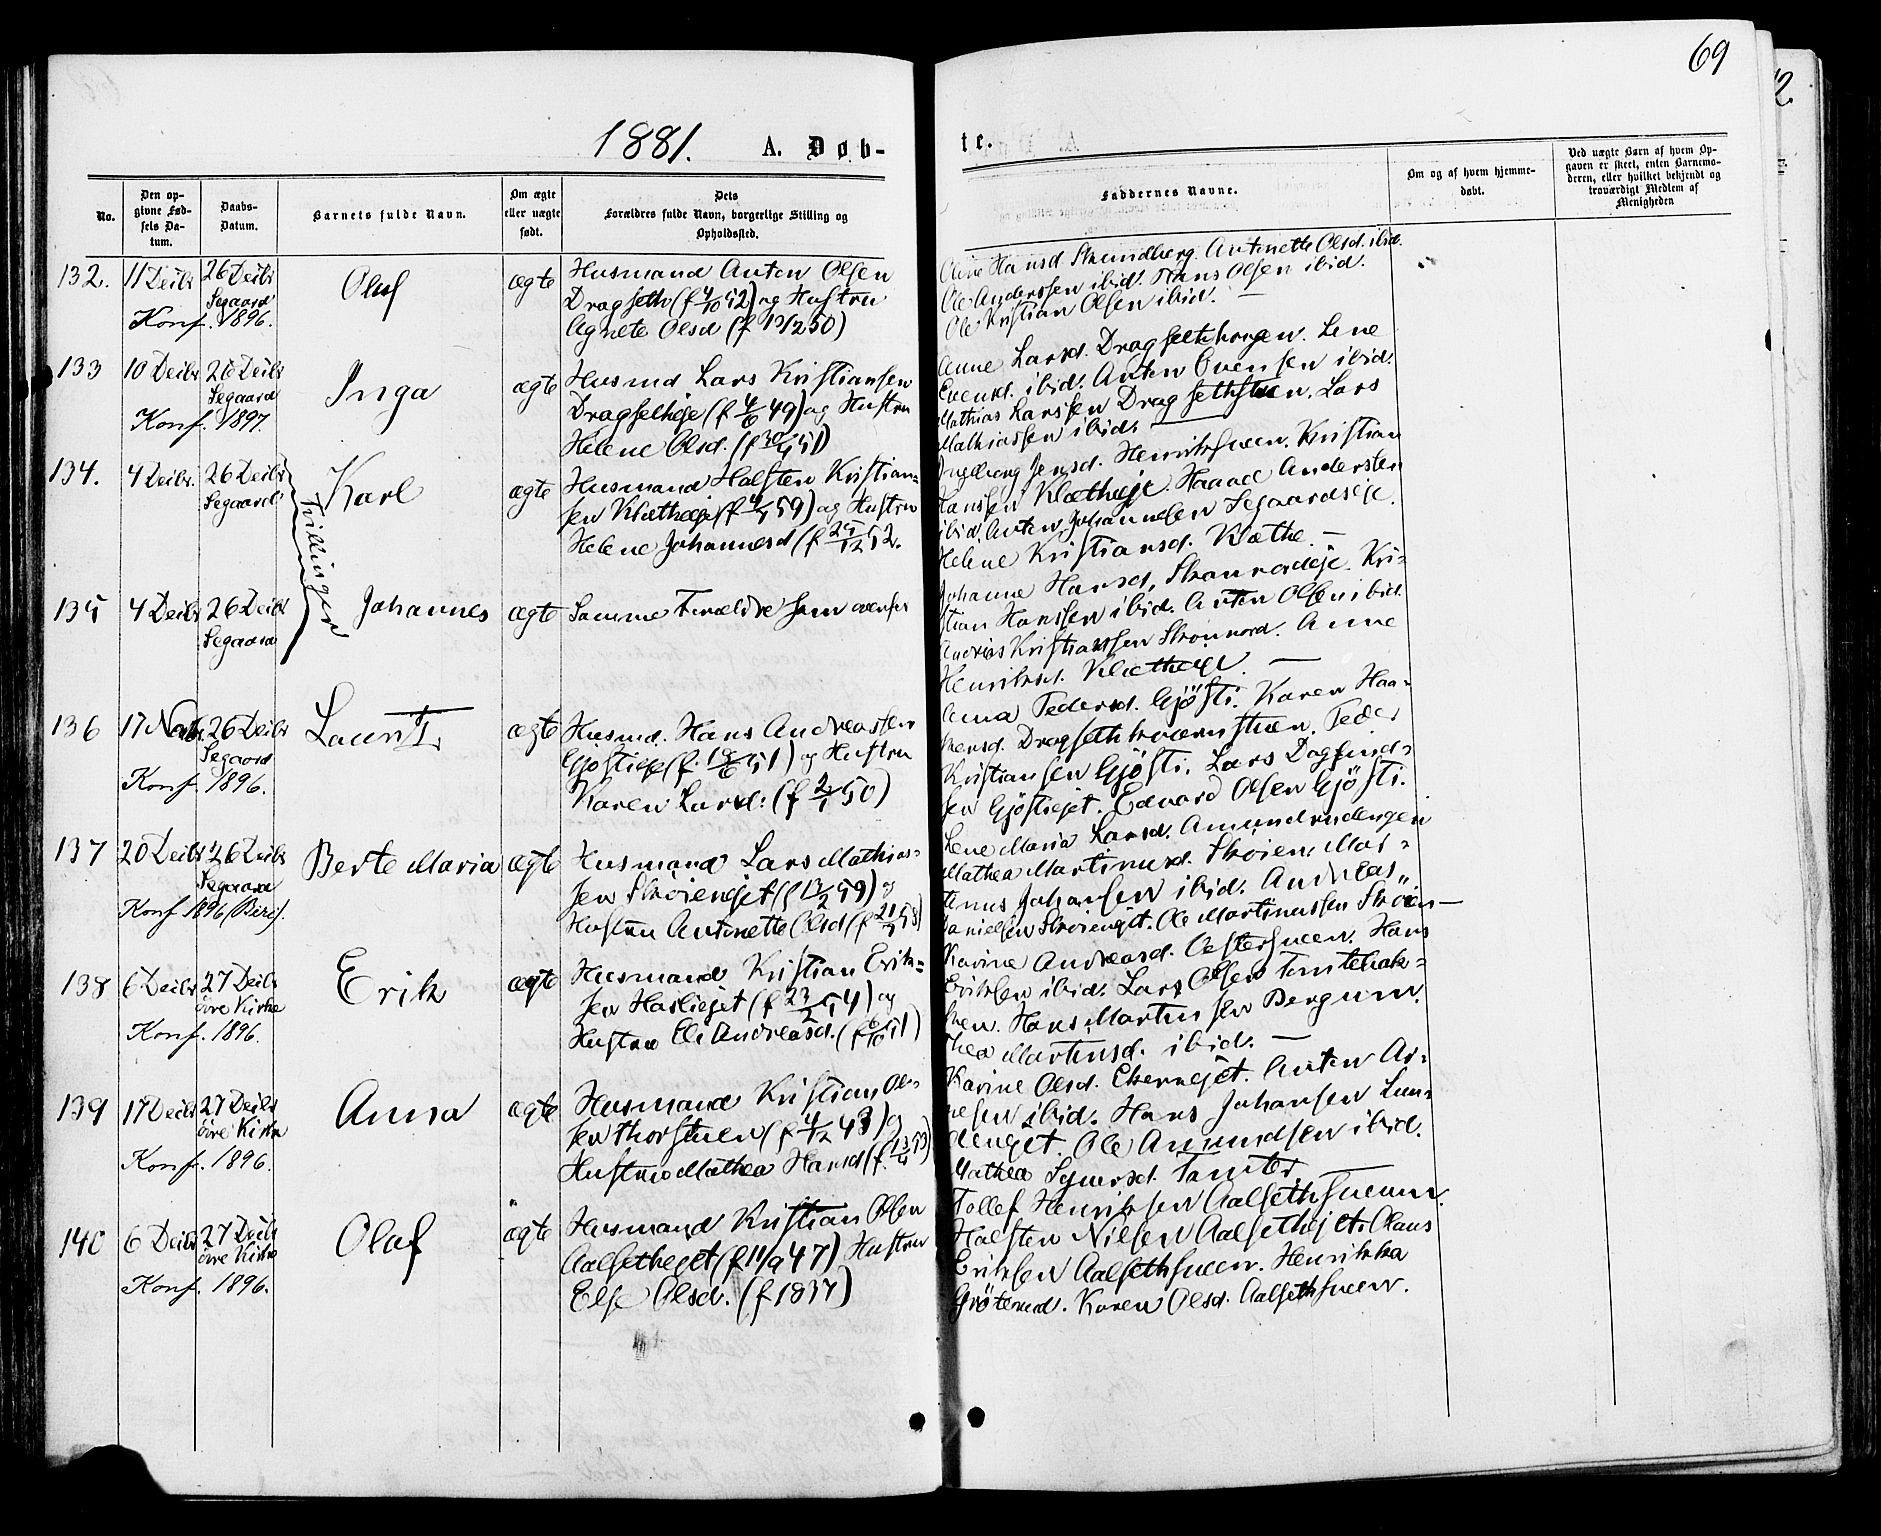 69
1881. A. Døb-
te.
No.
Den opgivne Fødsels Datum.
Daabs-Datum.
Barnets fulde Navn.
Om ægte eller uægte født.
Dets Forældres fulde Navn, borgerlige Stilling og Opholdssted.
Faddernes Navne.
Om og af hvem hjemmedøbt.
Ved uægte Barn af hvem Opgaven er skeet, enten Barnemoderen, eller hvilket bekjendt og troværdigt Medlem af Menigheden
132. 11 Decbr 26 Decbr Segaard Oluf ægte Husmand Anton Olsen
Dragseth (f 4/10 52) og Hustru
Agnete Olsd (f 19/2 50)
Konf. 1896.
Oline Hansd Strundberg. Antonette Olsd. ibid.
Ole Anderssen ibid. Hans Olsen ibid.
Ole Kristian Olsen ibid. —
133 10 Decbr 26 Decbr Segaard Inga ægte Husmd Lars Kristiansen
Dragsetheje (f 4/6 49) og Hustru
Helene Olsd. (f 30/4 51)
Konf. 1897.
Anne Larsd. Dragsethhougen. Lene
Evensd. ibid. Anton Evensen ibid.
Mathias Larssen Dragsethstuen. Lars
Mathiassen ibid.
134. 4 Decbr. 26 Decbr Segaard Karl ægte Husmand Halsten Kristian-
sen Klætheje (f 4/5 59) og Hustru
Helene Johannesd (f 25/12 52.
Tvillinger
Ingeborg Jensd. Henrikssveen. Kristian
Hanssen Klætheje. Haave Andersten
ibid. Anton Johannesen Segaardseje.
Helene Kristiansd. Klæthe. —
135 4 Decbr 26 Decbr Segaard Johannes ægte Samme Forældre som ovenfor
Johanne Hansd. Skonnordeje. Kri-
stian Hanssen ibid. Anton Olsen ibid.
Andreas Kristianssen Skonnord. Anne
Henriksd. Klætheje —
136 17 Novbr. 26 Decbr Segaard Lauritz ægte Husmd. Hans Andreassen
Gjøstieje (f. 18/6 51) og Hustru
Karen Larsd: (f 2/1 50)
Konf 1896.
Anna Pedersd. Gjøsti. Karen Haa-
kensd. Dragsethkværnstuen. Peder
Kristiansen Gjøsti. Lars Dagfind-
sen Gjøstiejet. Edvard Olsen Gjøsti.
137 20 Decbr 26 Decbr Segaard Berte Maria ægte Husmand Lars Mathias-
sen Skøienejet (f 13/2 59) og
Hustru Antonette Olsd (f 21/7 58)
Konf 1896 (Biri).
Lene Maria Larsd. Amundrudengen
Mathea Martinusd. Skøien. Mar-
tinus Johansen ibid. Andreas
Danielsen Skøienejet. Ole Martinussen Skøien —
138 6 Decbr 27 Decbr øvre Kirke Erik ægte Husmand Kristian Erik-
sen Haslieejet (f 23/2 54) og
Hustru Eli Andreasd. (f 6/10 51)
Konf. 1896.
Karine Andreasd. Oestersveen. Hans
Eriksen ibid. Lars Olsen Tomtebak-
ken. Hans Martinsen Bergum.
Thea Martinsd. ibid. —
139 17 Decbr 27 Decbr øvre Kirke Anna ægte Husmand Kristian Ol-
sen Thorstuen (f 4/12 43) og
Hustru Mathea Hansd (f. 13/4 53)
Konf. 1896.
Karine Olsd. Ekernejet. Anton Ar-
nesen ibid. Hans Johansen Lun-
denget. Ole Amundsen ibid.
Mathea Syversd. Tomter
140 6 Decbr 27 Decbr øvre Kirke Olaf ægte Husmand Kristian Olsen
Aalsethejet (f 11/9 47) Hustru
Else Olsd. (f 1837)
Konf. 1896.
Tollef Henriksen Aalsethsveen.
Halsten Nilsen Aalsethejet. Olaus
Eriksen Aalsethsveen. Henrikka
Grøterud. Karen Olsd. Aalsethsveen.